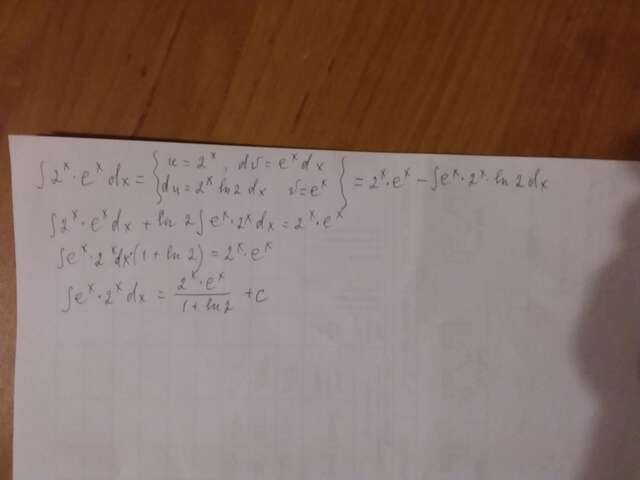 ∫2^x · e^x dx = { u = 2^x, dv = e^x dx du = 2^x ln 2 dx v = e^x } = 2^x · e^x − ∫e^x · 2^x · ln 2 dx
∫2^x · e^x dx + ln 2 ∫e^x · 2^x dx = 2^x · e^x
∫e^x · 2^x dx · (1 + ln 2) = 2^x · e^x
∫e^x · 2^x dx = (2^x · e^x)/(1 + ln 2) + c